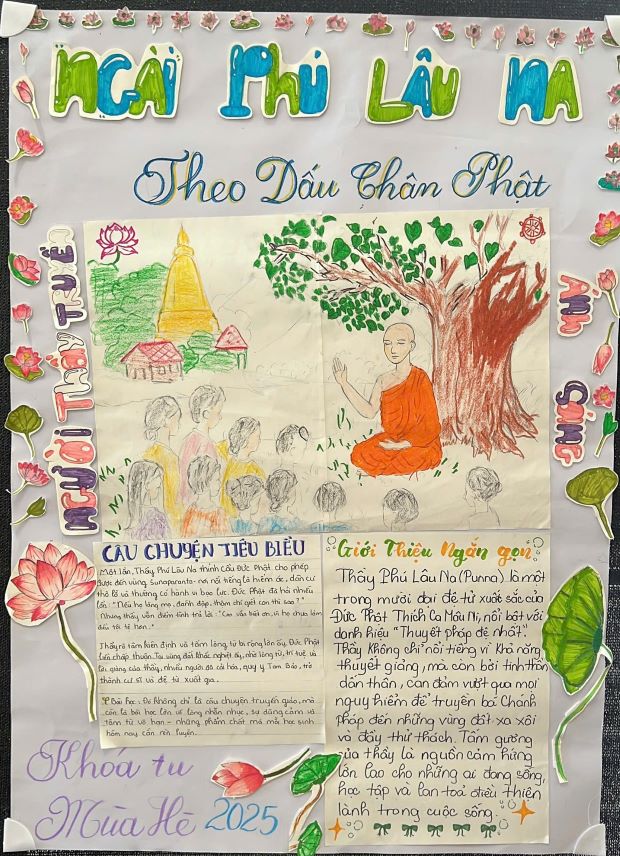 NGÀI PHÚ LÂU NA
Theo Dấu Chân Phật
NGƯỜI THẦY TUỆ
ÁNH SÁNG
CÂU CHUYỆN TIÊU BIỂU
Một lần, Thầy Phú Lâu Na thỉnh cầu Đức Phật cho phép
được đến vùng Sunaparanta - nơi nổi tiếng là hiểm ác, dân cư
thô lỗ và thường có hành vi bạo lực. Đức Phật đã hỏi nhiều
lần: "Nếu họ lăng mạ, đánh đập, thậm chí giết con thì sao?"
Nhưng thầy vẫn điềm tĩnh trả lời: "Con vẫn biết ơn, vì họ chưa làm
điều tồi tệ hơn."
Thấy rõ tâm kiên định và tấm lòng từ bi rộng lớn ấy, Đức Phật
chấp thuận. Tại vùng đất khắc nghiệt ấy, nhờ lòng từ, trí tuệ và
lời giảng của thầy, nhiều người đã cải hóa, quy y Tam Bảo, trở
thành cư sĩ và đệ tử xuất gia.
Bài học: Đó không chỉ là câu chuyện truyền giáo, mà
còn là bài học lớn về lòng nhẫn nhục, sự dũng cảm và
tâm từ vô hạn - những phẩm chất mà mỗi học sinh
hôm nay cần rèn luyện.
Giới Thiệu Ngắn gọn
Thầy Phú Lâu Na (Punna) là một
trong mười đại đệ tử xuất sắc của
Đức Phật Thích Ca Mâu Ni, nổi bật với
danh hiệu "Thuyết pháp đệ nhất".
Thầy không chỉ nổi tiếng vì khả năng
thuyết giảng, mà còn bởi tinh thần
dấn thân, can đảm vượt qua mọi
nguy hiểm để truyền bá Chánh
pháp đến những vùng đất xa xôi
và đầy thử thách. Tấm gương
của thầy là nguồn cảm hứng
lớn lao cho những ai đang sống,
học tập và lan toả điều thiện
lành trong cuộc sống.
Khóa tu
Mùa Hè 2025